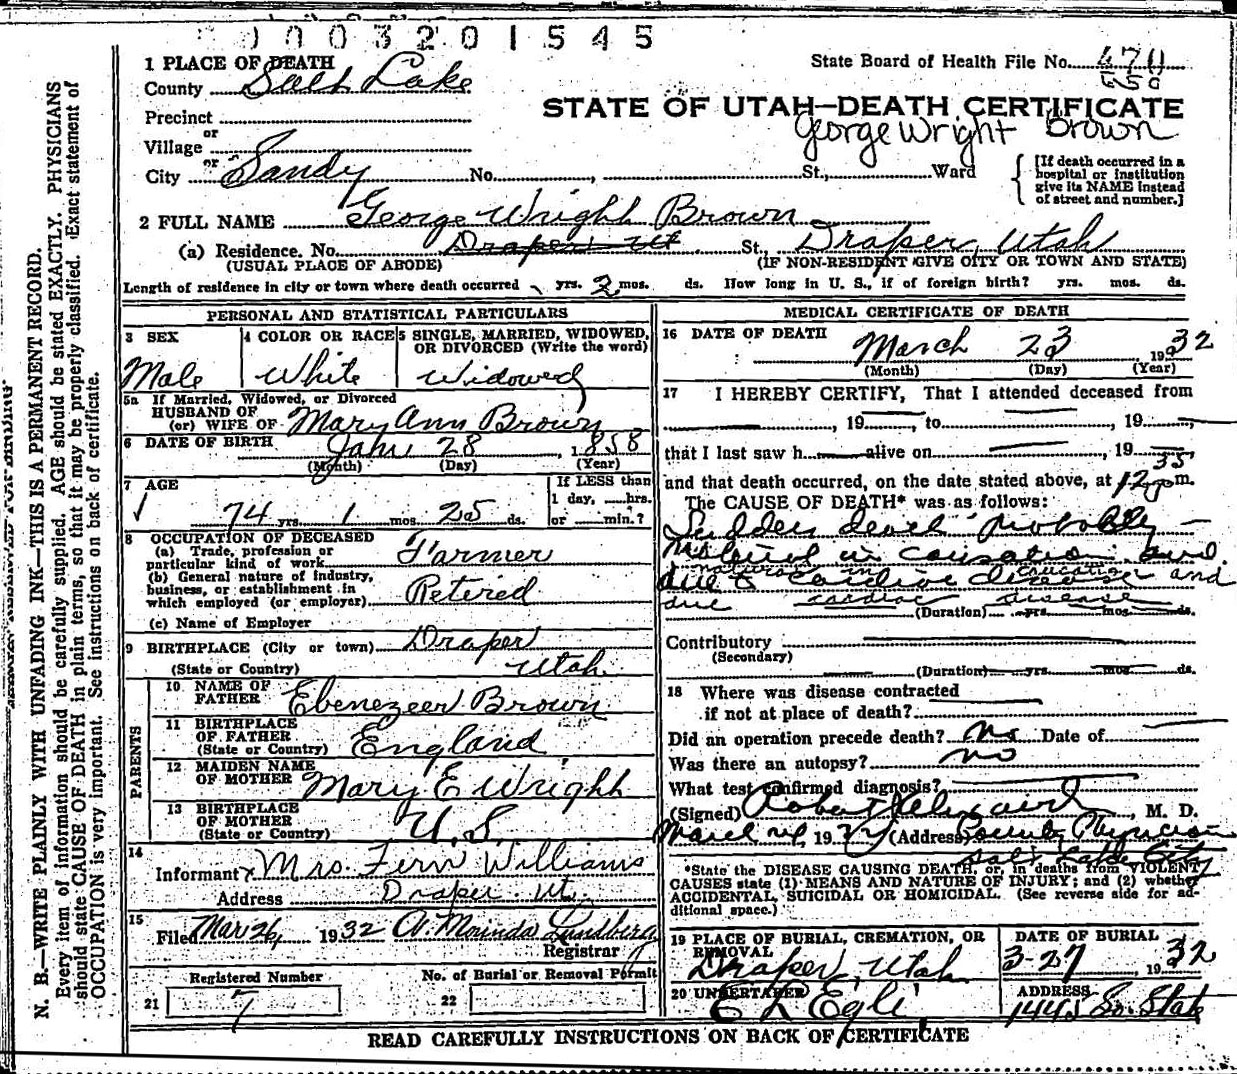 0003201545
1 PLACE OF DEATH
County Salt Lake
State Board of Health File No. 470
550
STATE OF UTAH—DEATH CERTIFICATE
George Wright Brown
Precinct
or
Village
or
City Sandy No. , St., Ward
[If death occurred in a hospital or institution give its NAME instead of street and number.]
2 FULL NAME George Wright Brown
(a) Residence. No. Draper Ut St. Draper, Utah
(USUAL PLACE OF ABODE) (IF NON-RESIDENT GIVE CITY OR TOWN AND STATE)
Length of residence in city or town where death occurred yrs. 2 mos. ds. How long in U. S., if of foreign birth? yrs. mos. ds.
PERSONAL AND STATISTICAL PARTICULARS
3 SEX 4 COLOR OR RACE 5 SINGLE, MARRIED, WIDOWED, OR DIVORCED (Write the word)
Male White Widowed
5a If Married, Widowed, or Divorced
HUSBAND OF
(or) WIFE OF Mary Ann Brown
6 DATE OF BIRTH Jan. 28, 1858
(Month) (Day) (Year)
7 AGE If LESS than
1 day, hrs.
74 yrs. 1 mos. 25 ds. or min.?
8 OCCUPATION OF DECEASED
(a) Trade, profession or
particular kind of work Farmer
(b) General nature of industry,
business, or establishment in
which employed (or employer) Retired
(c) Name of Employer
9 BIRTHPLACE (City or town) Draper
(State or Country) Utah
PARENTS
10 NAME OF
FATHER Ebenezeer Brown
11 BIRTHPLACE
OF FATHER
(State or Country) England
12 MAIDEN NAME
OF MOTHER Mary E Wright
13 BIRTHPLACE
OF MOTHER
(State or Country) U. S.
14
Informant Mrs. Fern Williams
Address Draper Ut.
15
Filed Mar 26, 1932 A. Morinda Lundberg
Registrar
Registered Number No. of Burial or Removal Permit
21 7 22
MEDICAL CERTIFICATE OF DEATH
16 DATE OF DEATH
March 23 1932
(Month) (Day) (Year)
17 I HEREBY CERTIFY, That I attended deceased from
, 19 , to , 19 ,
that I last saw h alive on , 19
and that death occurred, on the date stated above, at 12 35 p m.
The CAUSE OF DEATH* was as follows:
Sudden death probably
natural in causation and
natural in causation and
due to cardiac disease
due cardiac disease
(Duration) yrs. mos. ds.
Contributory
(Secondary)
(Duration) yrs. mos. ds.
18 Where was disease contracted
if not at place of death?
Did an operation precede death? no Date of
Was there an autopsy? no
What test confirmed diagnosis?
(Signed) Robert , M. D.
March 24, 19 (Address) County Physician
Salt Lake City
*State the DISEASE CAUSING DEATH, or, in deaths from VIOLENT
CAUSES state (1) MEANS AND NATURE OF INJURY; and (2) whether
ACCIDENTAL, SUICIDAL OR HOMICIDAL. (See reverse side for ad-
ditional space.)
19 PLACE OF BURIAL, CREMATION, OR REMOVAL DATE OF BURIAL
Draper, Utah 3-27, 1932
20 UNDERTAKER ADDRESS
E L Egli 1445 So. State
READ CAREFULLY INSTRUCTIONS ON BACK OF CERTIFICATE
N. B.—WRITE PLAINLY WITH UNFADING INK—THIS IS A PERMANENT RECORD.
Every item of information should be carefully supplied. AGE should be stated EXACTLY. PHYSICIANS
should state CAUSE OF DEATH in plain terms, so that it may be properly classified. Exact statement of
OCCUPATION is very important. See instructions on back of certificate.